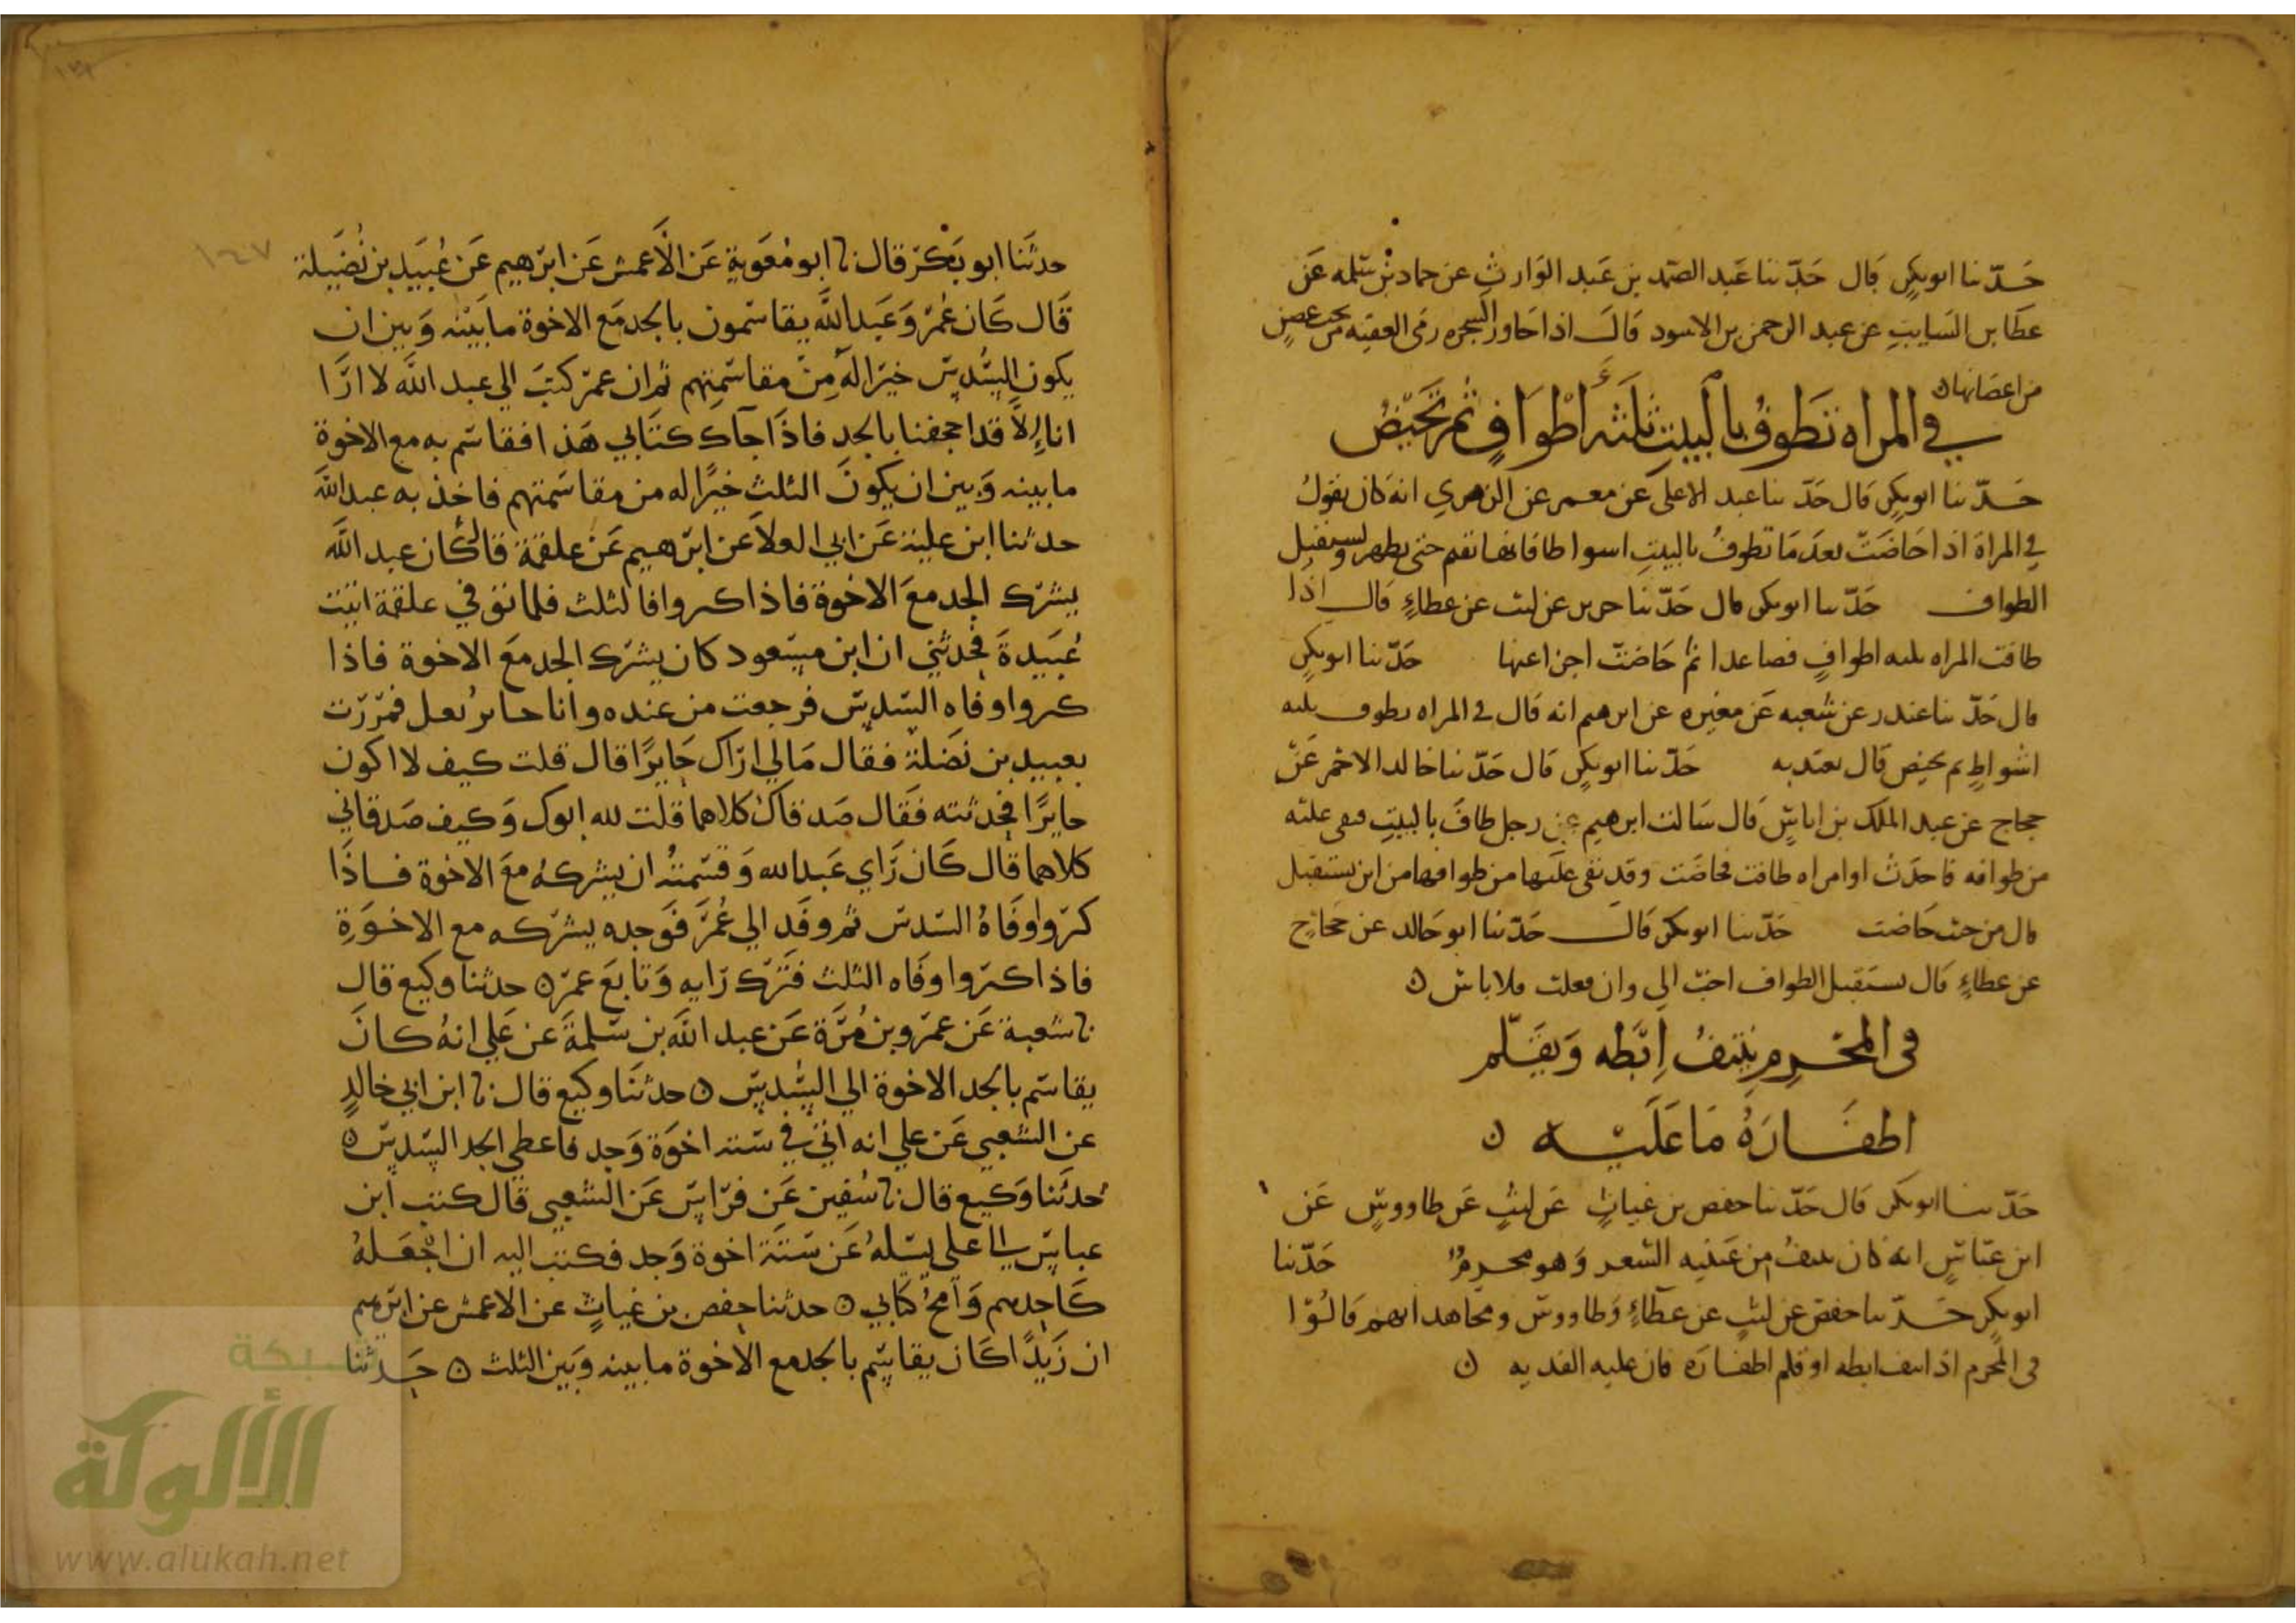 حَدّثنا ابوبكرٍ قال حَدّثنا عَبد الصّمد بن عَبد الوَارثِ عن حماد بن سَلمه عَن
عطا بن السَايبِ عن عبد الرحمن بن الاسود قالَ اذا جَاوز الشجره رمى العقبه من غصنٍ
من اغصَانها ن
في المراه تَطوفُ بالبَيتِ ثلثة أَطْوَافٍ ثم تَحيّضُ
حَدّثنا ابوبكرٍ قال حَدّثنا عبد الاعلى عَن معمر عن الزهري انه كان يقولُ
في المراة اذا حَاضَتْ بعدَ مَا تطوفُ بالبيتِ اسواطا فانها تقيم حتى تطهر وتستقبل
الطواف حَدّثنا ابوبكر قال حَدّثنا جرير عن ليث عن عطاءٍ قال اذا
طافت المراه ثلثه اطوافٍ فصاعدا ثم حَاضتْ اجزا عنها حَدّثنا ابوبكرٍ
قال حَدّثنا غندر عن شعبه عَن مغيره عن ابرهيم انه قال في المراه تطوف ثلثه
اشواطٍ ثم تحيض قال تعتد به حَدّثنا ابوبكرٍ قال حَدّثنا خالد الاحمر عَنْ
حجاج عن عبد الملك بن اياسٍ قال سَالت ابرهيم عن رجل طافَ بالبيتِ فبقى عليه
من طوافه فاحدَث او امراه طافت فحاضَت وقد بقى علَيها من طوافها من اين يستقبل
قال من حيث حَاضت حَدّثنا ابوبكر قالَ حَدّثنا ابو خَالد عن حَجّاجٍ
عن عطاءٍ قال تستقبل الطواف احبّ الي وان فعلت فلا باس ن
في المحْرمِ ينتفُ اِبطه وَيقلّم
اظفَارَهُ مَا عَلَيْه ن
حَدّثنا ابوبكر قال حَدّثنا حفص بن غياثٍ عَن ليثٍ عَن طاووسٍ عَن
ابن عبّاسٍ انه كان ينتفُ من عَينيه الشعر وَهو محرمٌ حَدّثنا
ابوبكرٍ حَدّثنا حفص عن ليثٍ عن عطاءٍ وَطاووسٍ ومجاهد انهم قالُوْا
في المُحرم اذا نتف ابطه او قلم اظفارَه فان عليه الفديه ن
١٤٧
حدثَنا ابو بَكرْ قال نا ابو مُعَوية عَن الاَعمش عَن ابرهيم عَن عُبَيدِ بن نُضَيلة
قَال كَان عُمرْ وَعَبد الله يقاسمون بالجد مَع الاخوة مابَينه وَبين ان
يكون السُّدس خيرا لَه مِن مقاسَمتِهم ثم ان عمرْ كتبَ الي عبد الله لا ارَا
انا اِلاَّ قد اجحفنا بالجد فاذَا جآك كتَابي هَذا فقاسم به مع الاخوة
مابينه وَبين ان يكونَ الثلث خيرًا له من مقاسَمتهم فاخذ به عبد الله
حدثنا ابن علية عَن ابي العلاَ عَن ابرهيم عَن علقمة قال كان عبد الله
يشرك الجد معَ الاخوة فاذا كثروا فالثلث فلما توفي علقمة اتيت
عُبَيدةَ فحَدثني ان ابن مسعود كان يشرك الجد معَ الاخوة فاذا
كثروا وفاه السّدسَ فرجعت من عنده وانا خاثر فمرَرْت
بعبيد بن نَضلة فقال مَالي ارَاك خَاثِرًا قال قلت كيف لا اكون
خاثرًا فحَدثته فَقال صَدقاك كلاهما قلت لله ابوك وَكيف صَدقاني
كلاهما قال كَان رَاي عَبد الله وَقسمتُه ان يشركهُ معَ الاخوة فاذَا
كثروا وَفَاهُ السّدسَ ثم وفَد الي عُمَر فَوجده يشرّكه مع الاخوَةِ
فاذا كثروا وَفاه الثلث فتَرك رَايه وَتابعَ عمرْ ن حدثنا وكيع قال
نا شعبة عَن عمرْو بن مُرَّة عَن عبد الله بن سَلمةَ عَن عَلي انهُ كانَ
يقاسَم بالجد الاخوة الي السُدس ن حدثَنا وكيع قال نا ابن ابي خالدٍ
عن الشعبي عَن علي انه اتي في ستة اخوَة وَجد فاعطي الجد السدس ن
حدثَنا وَكيع قال نا سُفين عَن فرَاس عَن الشعبي قال كتب ابن
عباس الى علي يسَلهُ عَن سَتَة اخوة وَجد فكتب اليه ان اجْعَلهُ
كَاحدهم وَامحُ كتابي ن حدثنا حفص بن غياثٍ عن الاعمش عن ابرهيم
ان زَيدًا كَان يقاسم بالجد مع الاخوة مابينه وَبين الثلث ن حَدثنا
شبكة
الألوكة
www.alukah.net